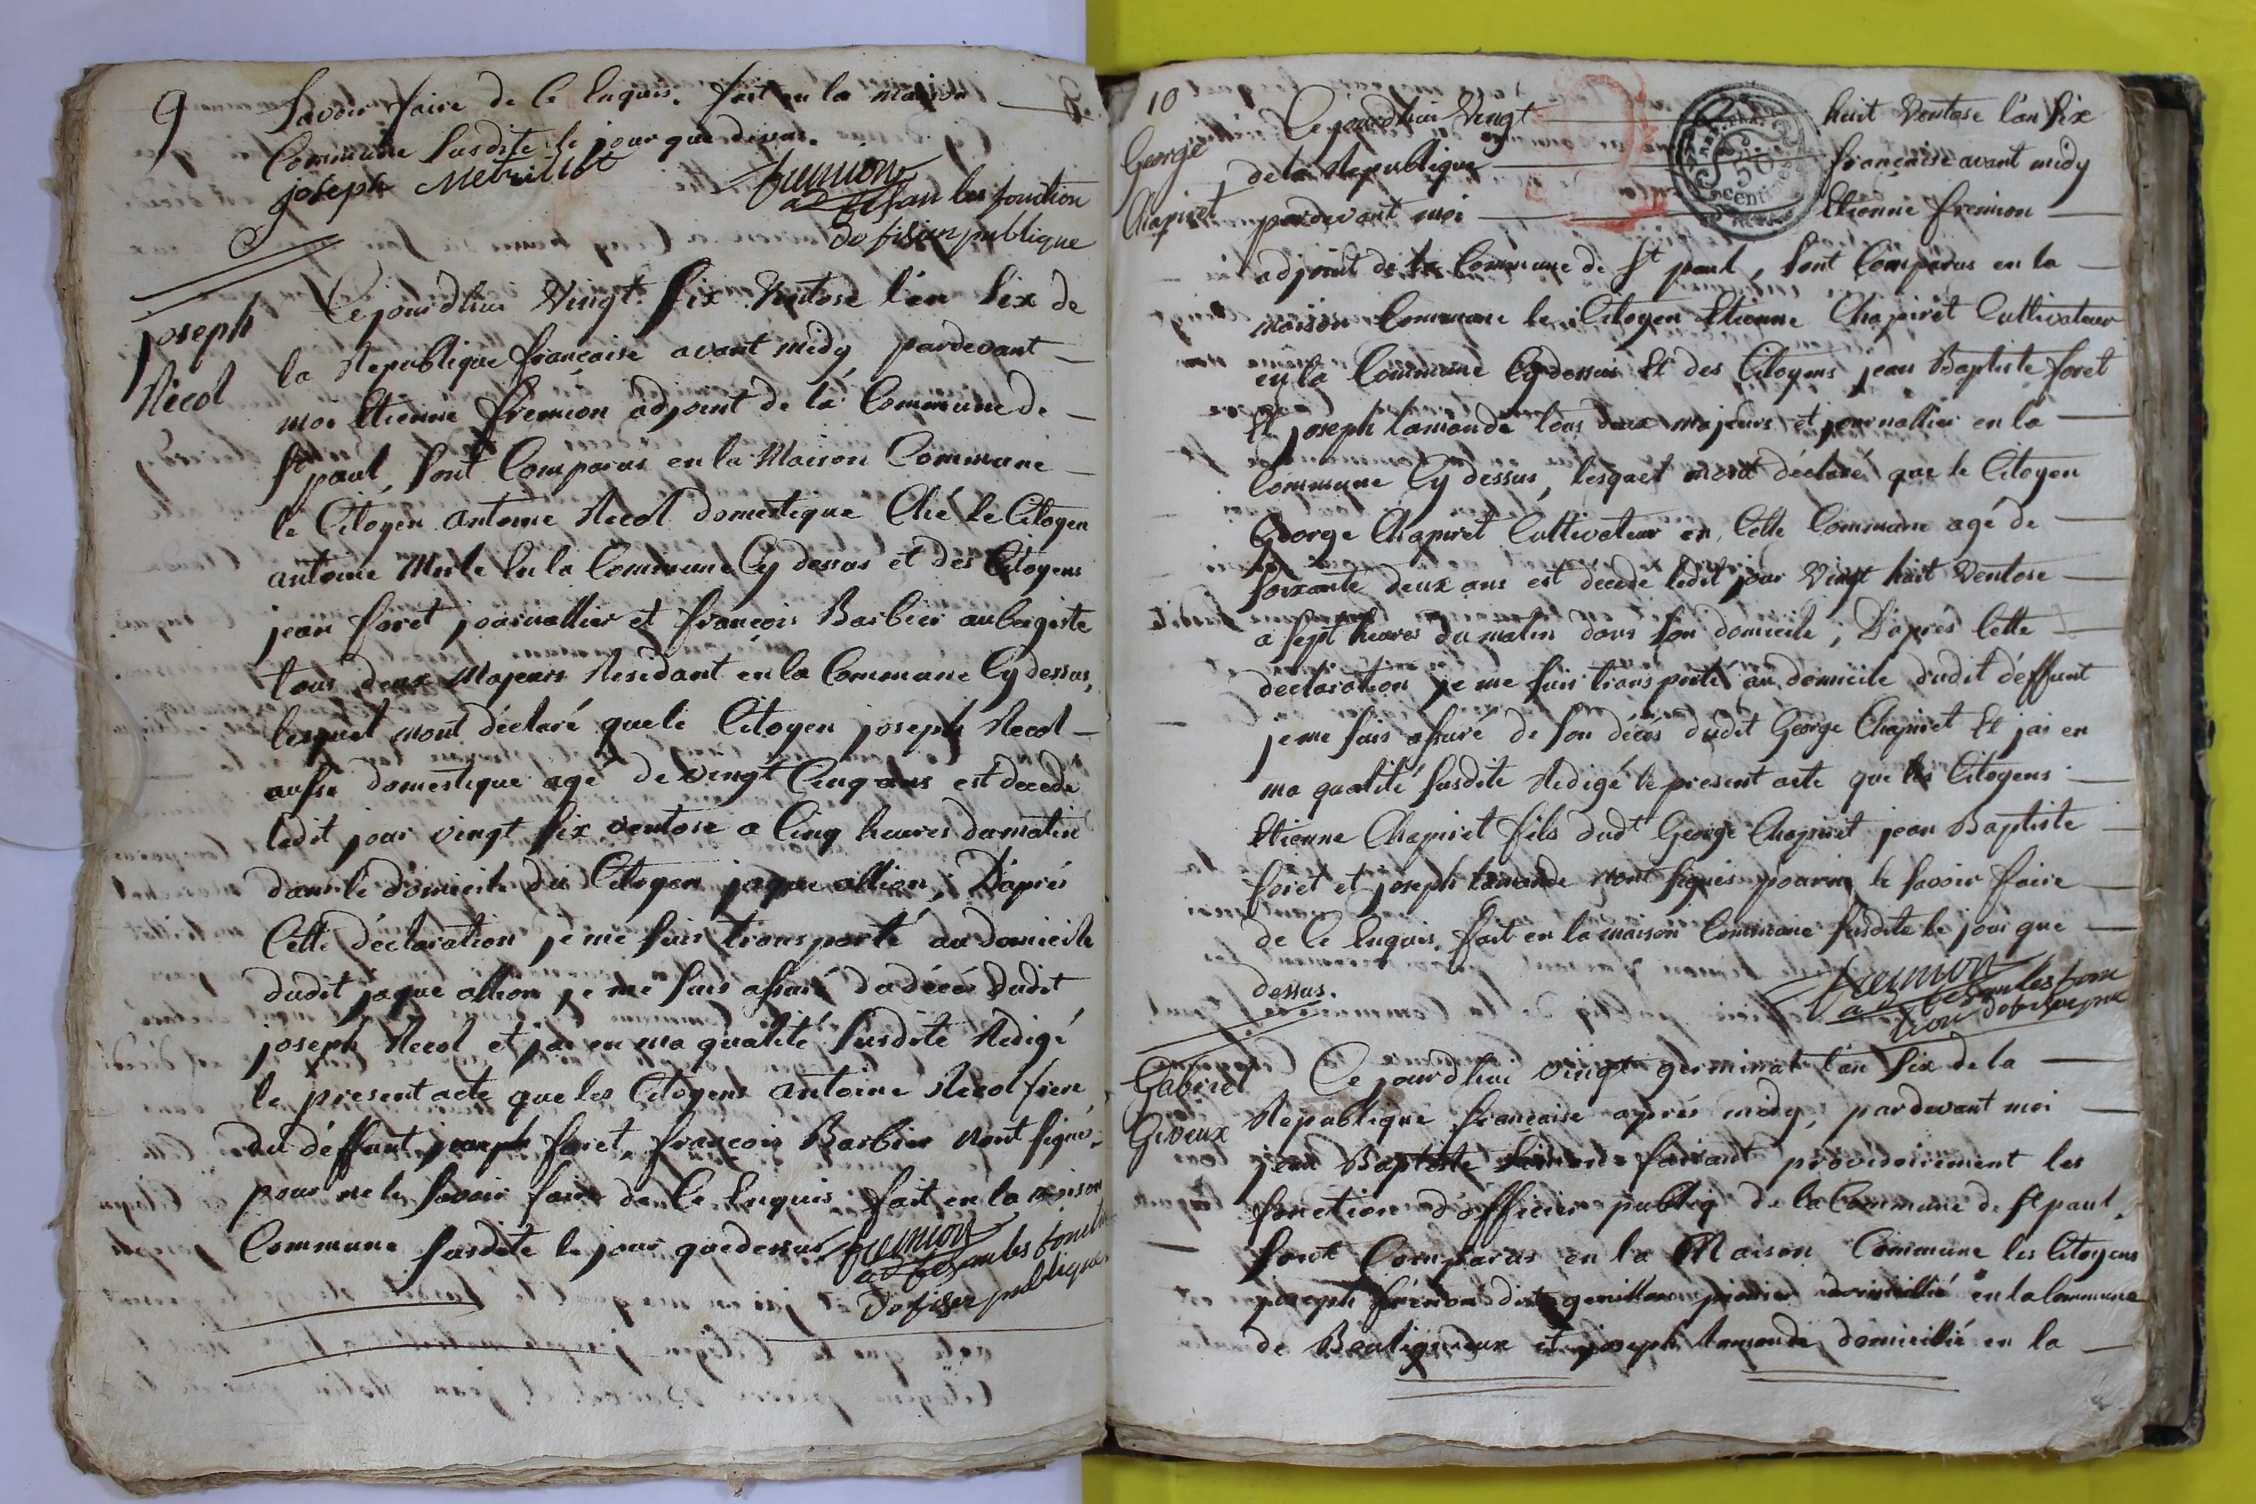 9
Savoir faire de Ce Enquis. fait en la maison
Commune Susdite le jour que dessus.
joseph Metrillot
fremion
ad fesan les fonction
do fisier publique
joseph
Recol
Cejourdhui Vingt Six Ventose l'an Six de
la Republique francaise avant midy, pardevant
moi Etienne fremion adjoint de la Commune de
St paul, Sont Comparus en la Maison Commune
le Citoyen antoine Recol domestique Ché le Citoyen
antoine Merle En la Commune Cy dessus et des Citoyens
jean foret journallier et françois Barbier aubergiste
tous deux Majeurs Residant en la Commune Cy dessus,
lesquel mont déclaré que le Citoyen joseph Recol
ausse domestique agé de vingt Cinq ans est decede
ledit jour vingt Six ventose a Cinq heures du matin
dans le domicile du Citoyen jaque allion, D'aprés
Cette déclaration je me suis transporté au domicile
dudit jaque allion je me suis assuré du décés dudit
joseph Recol et jai en ma qualité Susdite Redigé
le present acte que les Citoyens antoine Recol frere
du déffunt foret, françois Barbier nont signés
pour ne le Savoir faire de Ce Enquis fait en la maison
Commune Susdite le jour que dessus
fremion
ad fesan les foncti
dofisier publique
10
George
Chapiret
Cejourdhui Vingt huit Ventose l'an Six
de la Republique francaise avant midy
pardevant moi Etienne fremion
adjoint de la Commune de St paul, Sont Comparus en la
maison Commune le Citoyen Etienne Chapiret Cultivateur
en la Commune Cy dessus Et des Citoyens jean Baptiste foret
Et joseph lamonde tous deux majeurs et journallier en la
Commune Cy dessus, lesquel mont déclaré que le Citoyen
George Chapiret Cultivateur en Cette Commune agé de
Soixante deux ans est decede ledit jour Vingt huit Ventose
a sept heures du matin dans Son domicile, D'aprés Cette
declaration je me suis transporté au domicile dudit déffunt
je me suis assuré de Son décés dudit George Chapiret Et jai en
ma qualité susdite Redigé le present acte que les Citoyens
Etienne Chapiret fils dudt George Chapiret jean Baptiste
foret et joseph lamonde nont signés pour ne le Savoir faire
de Ce Enquis. fait en la maison Commune susdite le jour que
dessus.
fremion
ad fesan les fonc
tion dofisier
Gabriel
Giveux
Ce jourd'hui vingt germinal l'an Six de la
Republique francaise aprés midy, pardevant moi
jean Baptiste faisant provisoirement les
fonction d'officier publiq de la Commune de St paul,
Sont Comparus en la Maison Commune les Citoyens
joseph frémion dit domicillié en la Commune
de Bouligneux et joseph lamonde domicillié en la